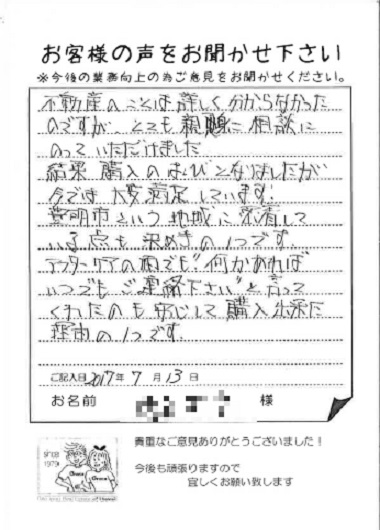 お客様の声をお聞かせ下さい
※今後の業務向上の為ご意見をお聞かせください。
不動産のことは詳しく分からなかった
のですが、とても親身に相談に
のっていただけました
結果 購入のはこびとなりましたが
今では大変満足しています。
豊明市という地域に密着して
いる点も決めての1つです。
アフターケアの面でも"何かあれば
いつでもご連絡下さい"と言って
くれたのも安心して購入出来た
理由の1つです。
ご記入日2017年 7 月 13 日
お名前 様
since
1979
貴重なご意見ありがとうございました!
今後も頑張りますので
宜しくお願い致します